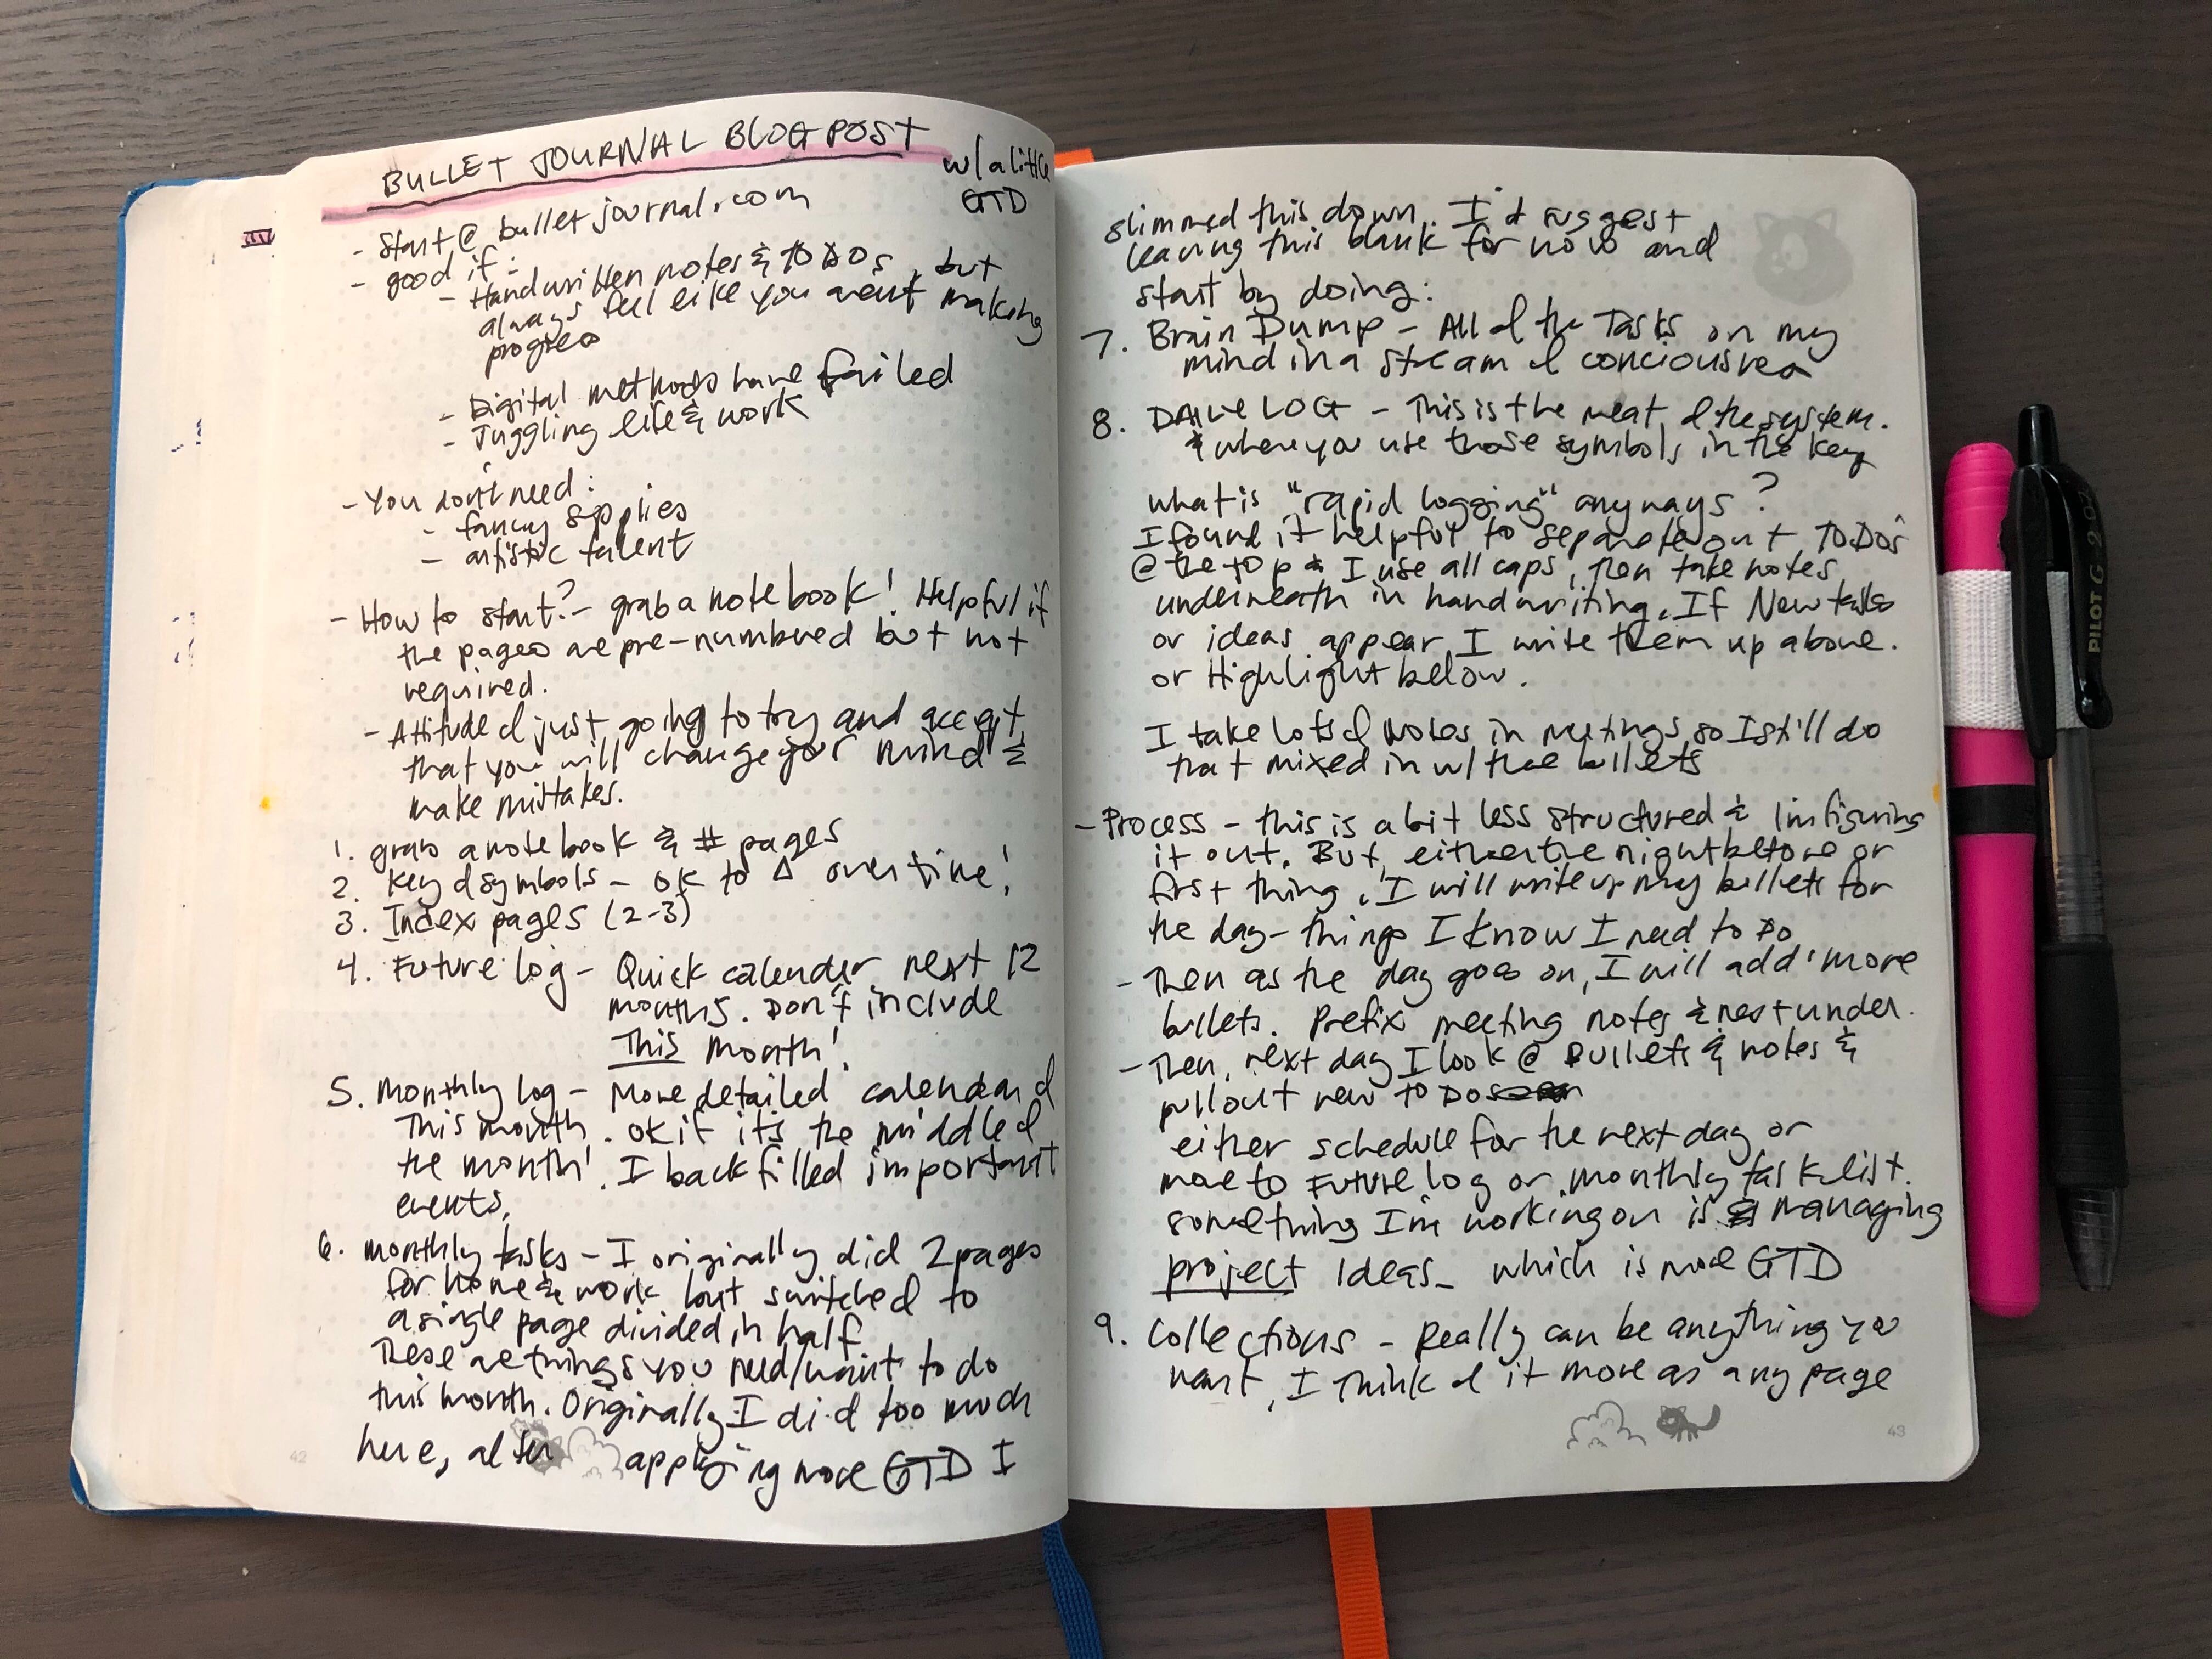 BULLET JOURNAL BLOG POST
w/a little
GTD
- Start @ bulletjournal.com
- good if:
- Handwritten notes & TO DOs, but
always feel like you arent making
progress
- Digital methods have failed
- Juggling life & work
- You don't need:
- fancy spplies
- artistic talent
- How to start? - grab a notebook! Helpful if
the pages are pre-numbered but not
required.
- Attitude of just going to try and accept
that you will change your mind &
make mistakes.
1. grab a notebook & # pages
2. Key of symbols - OK to Δ over time!
3. Index pages (2-3)
4. Future log - Quick calender next 12
months. Don't include
This month!
5. Monthly log - More detailed calendar of
This month. OK if it's the middle of
the month! I back filled important
events.
6. monthly tasks - I originally did 2 pages
for home & work but switched to
a single page divided in half
These are things you need/want to do
this month. Originally I did too much
here, after applying more GTD I
42
slimmed this down. I'd suggest
leaving this blank for now and
start by doing:
7. Brain Dump - All of the Tasks on my
mind in a stream of conciousness
8. DAILY LOG - This is the meat of the system.
& where you use those symbols in the key
what is "rapid logging" anyways?
I found it helpful to separate out TODOs
@ the top & I use all caps, Then take notes
underneath in handwriting. If New tasks
or ideas appear I write them up above.
or Highlight below.
I take lots of Notes in meetings so I still do
that mixed in w/ the bullets
- Process - this is a bit less structured & I'm figuring
it out. But, either the night before or
first thing, I will write up my bullets for
the day - things I know I need to do
- Then as the day goes on, I will add more
bullets. Prefix meeting notes & nest under.
- Then, next day I look @ Bullets & notes &
pull out new TO DOs
either schedule for the next day or
move to Future log or monthly task list.
something I'm working on is managing
project Ideas - which is more GTD
9. Collections - Really can be anything you
want, I think of it more as any page
43
PILOT G-2